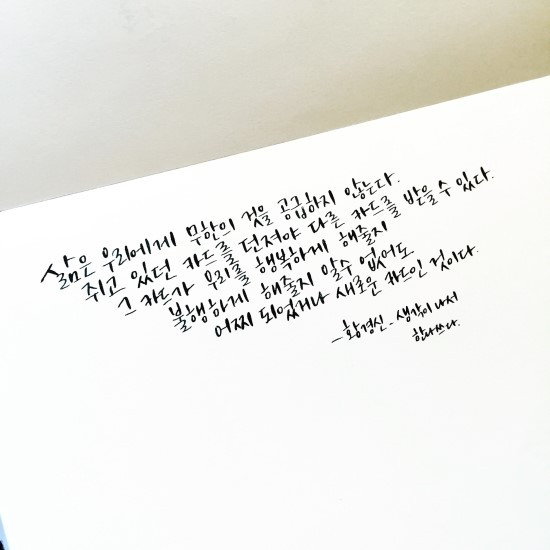 삶은 우리에게 무한이 것을 공급하지 않는다.
쥐고 있던 카드를 던져야 다른 카드를 받을 수 있다.
그 카드가 우리를 행복하게 해줄지
불행하게 해줄지 알수 없어도
어찌 되었거나 새로운 카드인 것이다.
- 황경신 - 생각이 나서
한다쓰다.